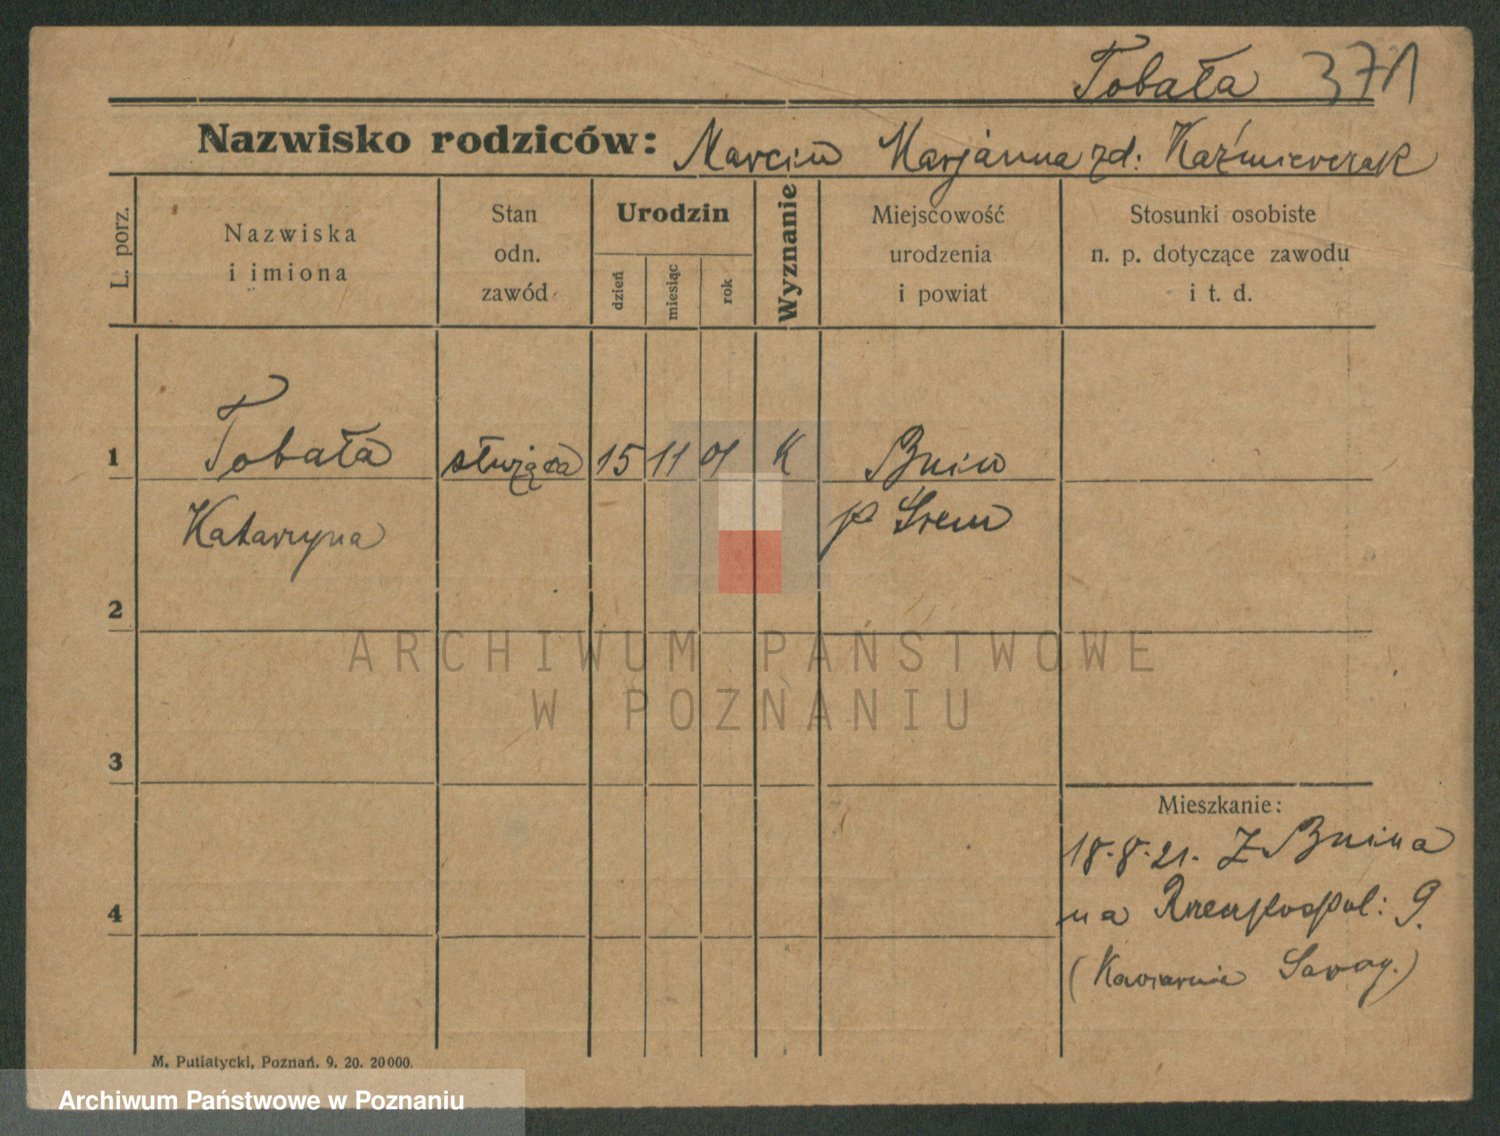 Tobała 371
Nazwisko rodziców: Marcin Marjanna zd. Kaźmierczak
L. porz.
Nazwiska
i imiona
Stan
odn.
zawód
Urodzin
dzień
miesiąc
rok
Wyznanie
Miejscowość
urodzenia
i powiat
Stosunki osobiste
n. p. dotyczące zawodu
i t. d.
1 Tobała służąca 15 11 01 K Bnin
Katarzyna p Śrem
2
3
4
Mieszkanie:
18.8.21. Z Bnina
na Rzeczpospol: 9.
(Kawiarnia Savoy.)
M. Putiatycki, Poznań. 9. 20. 20000.
ARCHIWUM PAŃSTWOWE
W POZNANIU
Archiwum Państwowe w Poznaniu